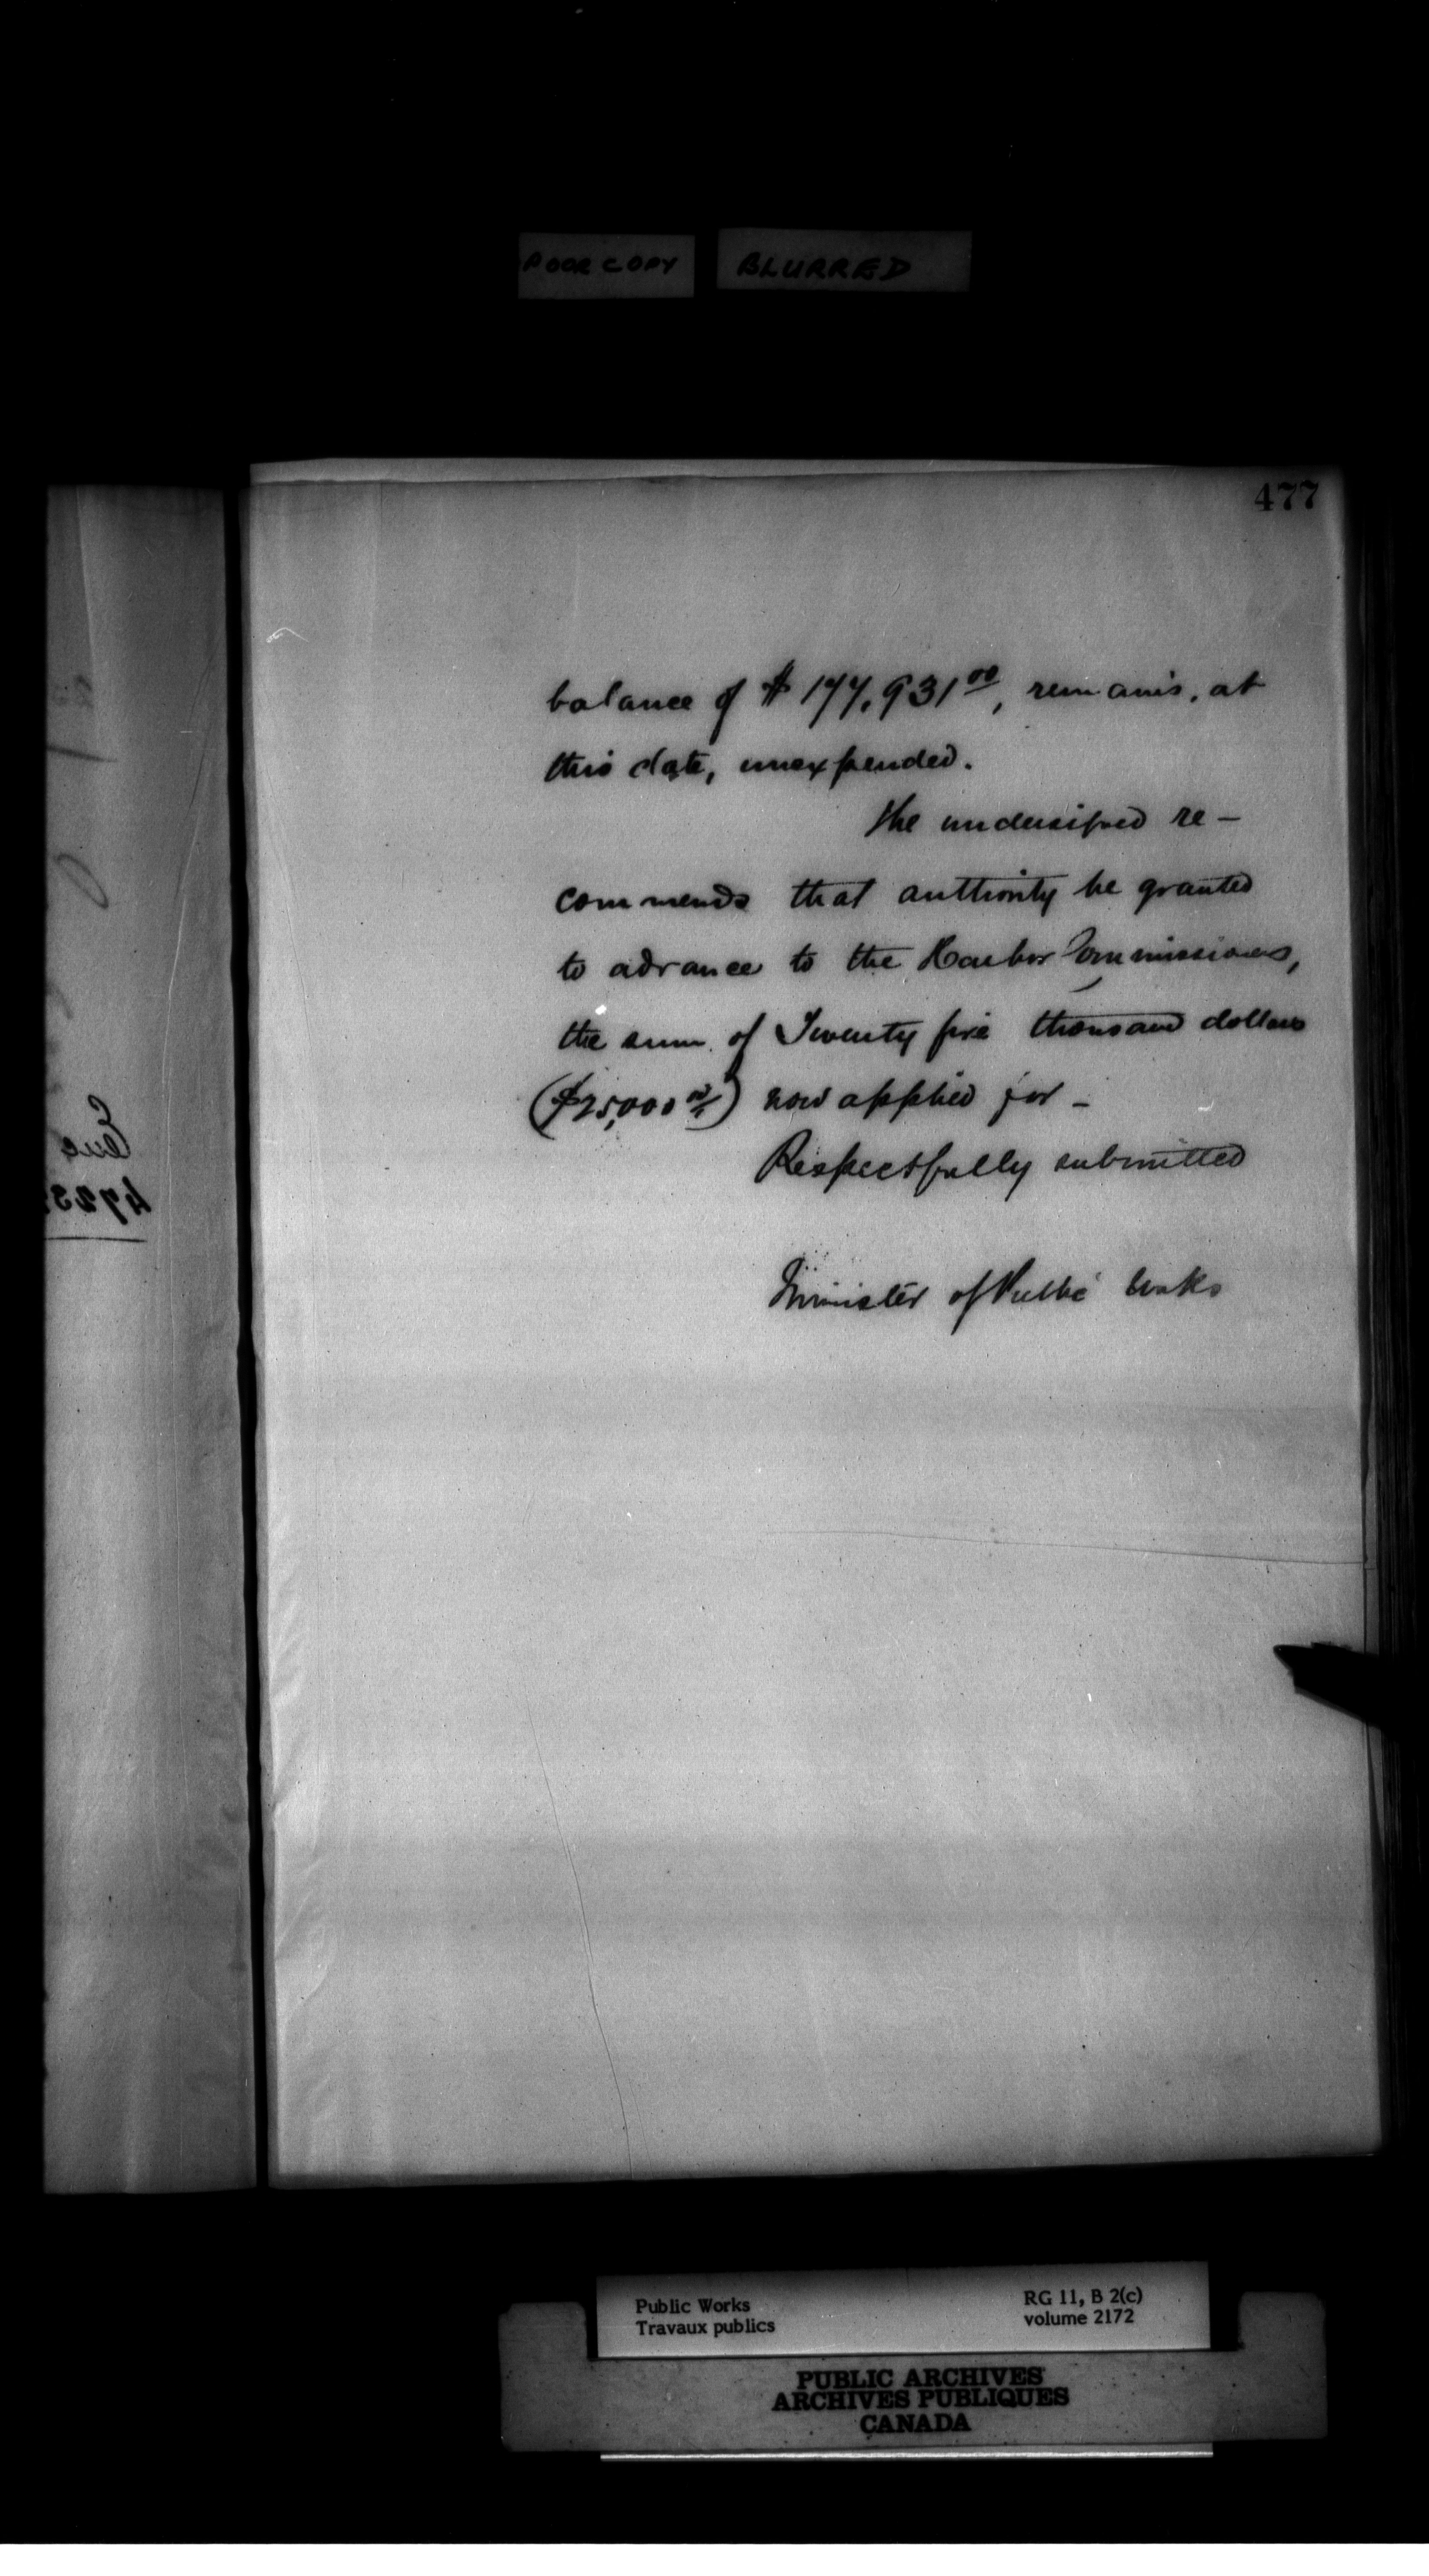 POOR COPY BLURRED
477
balance of $ 177,931 00, remains, at
this date, unexpended.
The undersigned re-
commends that authority be granted
to advance to the Harbor Commissioners,
the sum of Twenty five thousand dollars
($25,000 00) now applied for -
Respectfully submitted
Minister of Public Works
Public Works
Travaux publics
RG 11, B 2(c)
volume 2172
PUBLIC ARCHIVES
ARCHIVES PUBLIQUES
CANADA